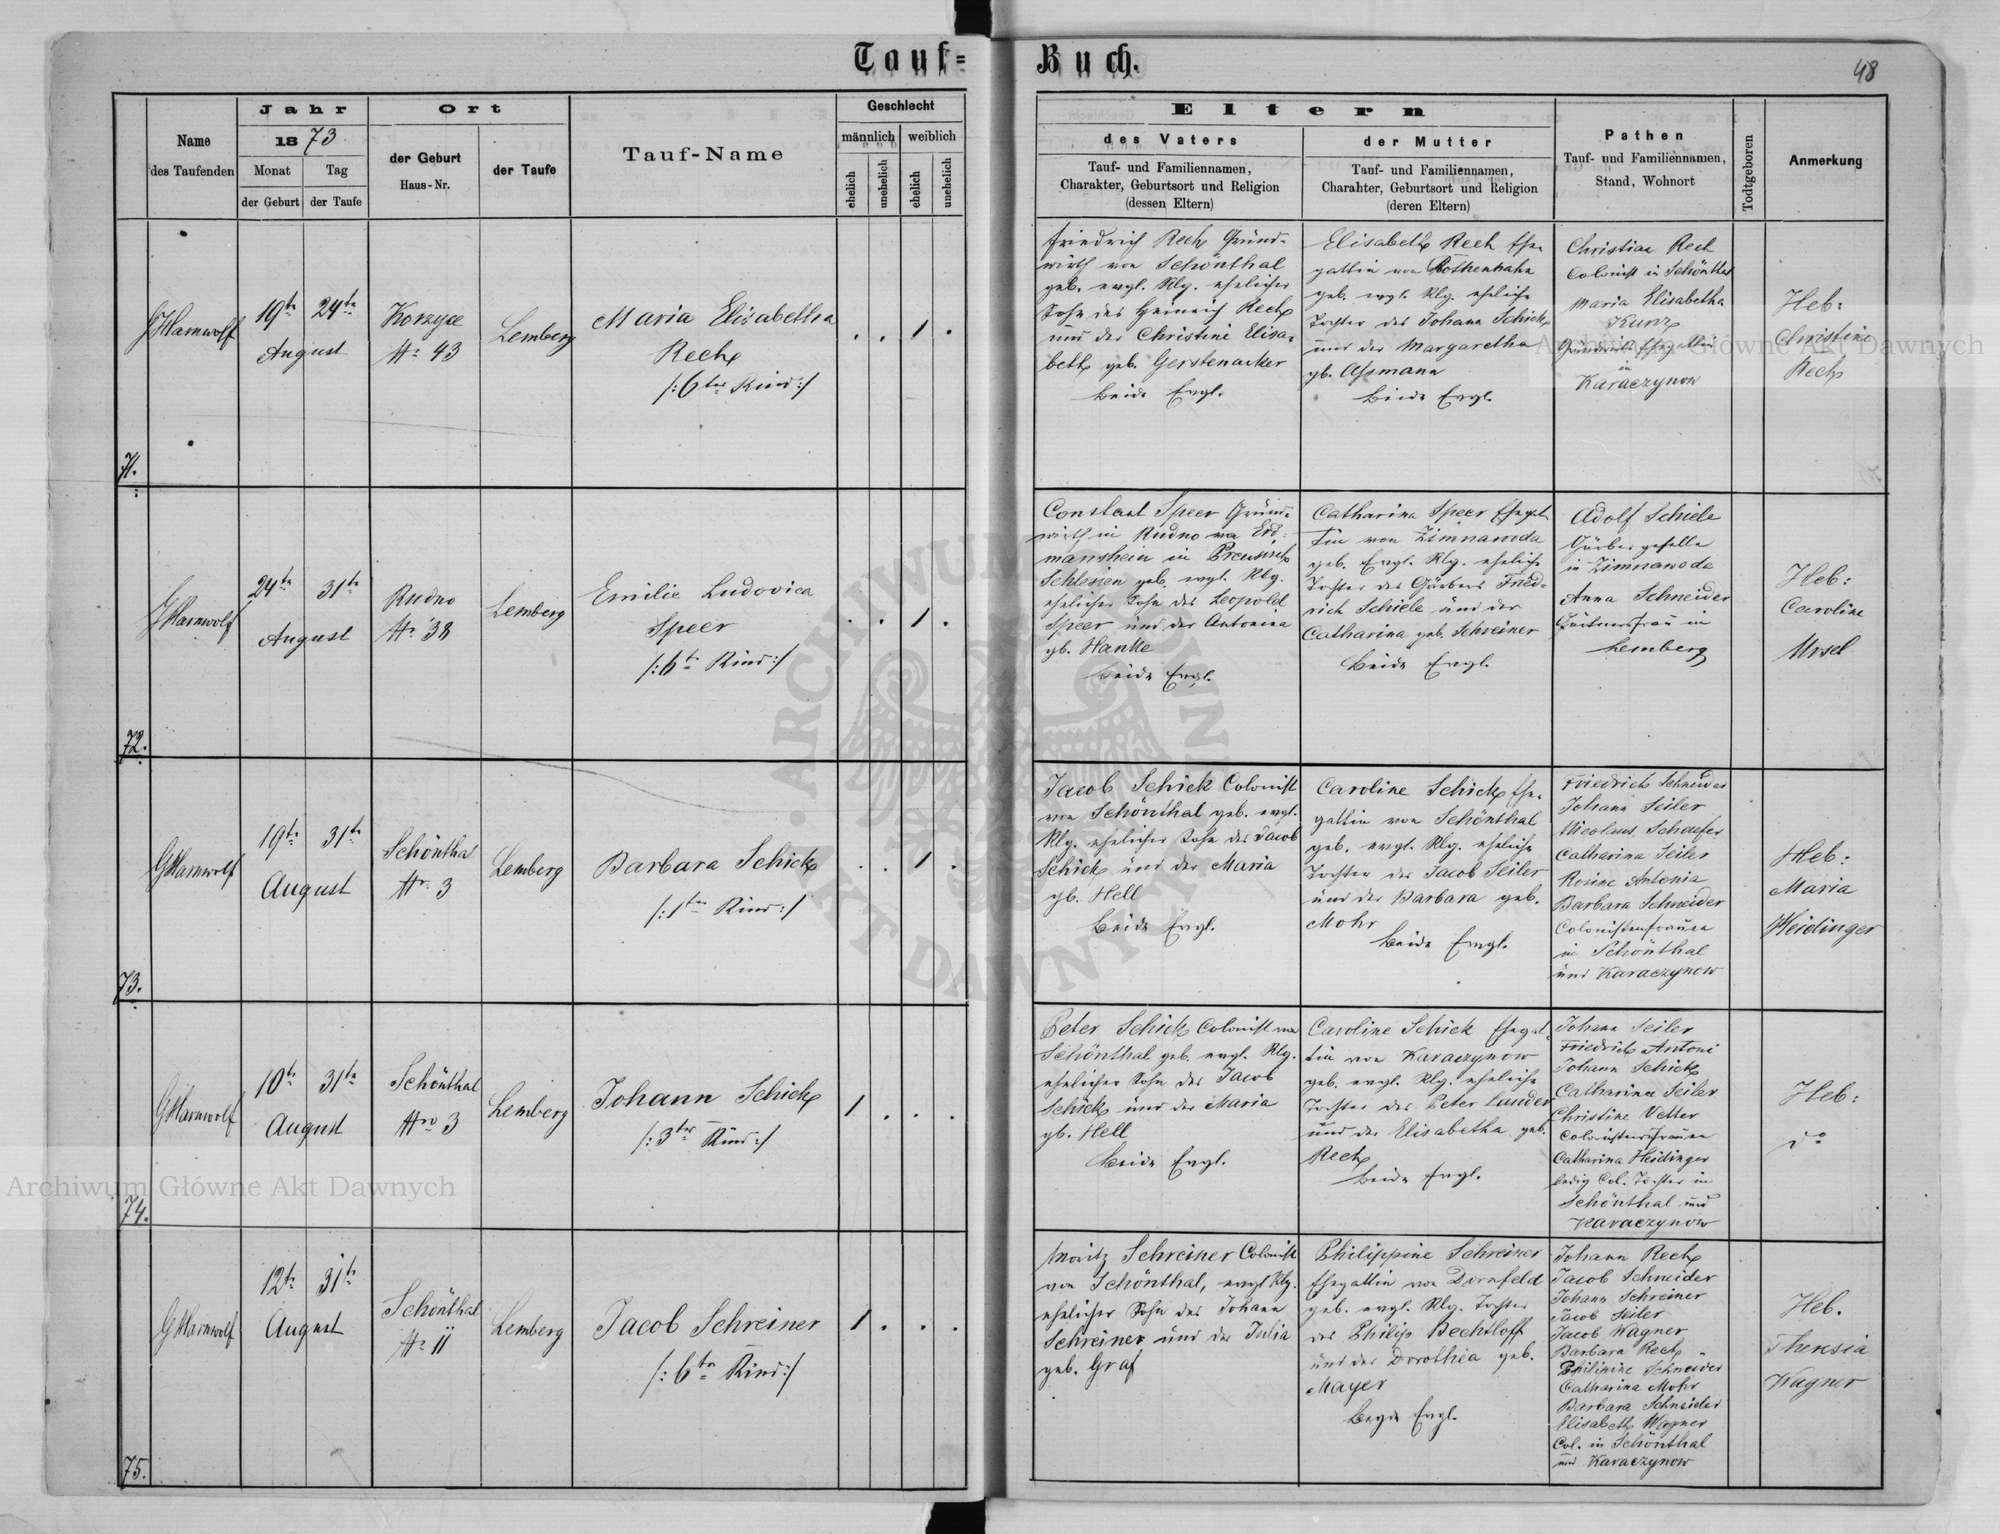 Tauf=
Buch.
48
Name
des Taufenden
Jahr
1873.
Monat
der Geburt
Tag
der Taufe
Ort
der Geburt
Haus-Nr.
der Taufe
Tauf-Name
Geschlecht
männlich
weiblich
ehelich
unehelich
ehelich
unehelich
Eltern
des Vaters
Tauf- und Familiennamen,
Charakter, Geburtsort und Religion
(dessen Eltern)
der Mutter
Tauf- und Familiennamen,
Charahter, Geburtsort und Religion
(deren Eltern)
Pathen
Tauf- und Familiennamen,
Stand, Wohnort
Todtgeboren
Anmerkung
71.
19te 24te
August
Korzyce
Nr 43
Lemberg
Maria Elisabetha
Rech
/:6tes Kind:/
. . 1 .
Friedrich Rech Grund-
wirth von Schönthal
geb. evgl. Rlg. ehelicher
Sohn des Heinrich Rech
und der Christine Elisa-
beth geb. Gerstenacker
beide Evgl.
Elisabeth Rech Ehe-
gattin von Rothenhahn
geb. evgl. Rlg. eheliche
Tochter des Johann Schick
und der Margaretha
gb. Assmann
beide Evgl.
Christian Rech
Colonist in Schönthal
Maria Elisabetha
Kunz
Grundwirths Ehegattin
in
Karaczynow
Heb:
Christine
Rech
72.
24te 31te
August
Rudno
Nr 38
Lemberg
Emilie Ludovica
Speer
/:6te Kind:/
. . 1 .
Constant Speer Grund-
wirth in Rudno von Erd-
manshein in Preussisch
Schlesien geb. evgl. Rlg.
ehelicher Sohn des Leopold
Speer und der Antonina
gb. Hanke
beide Evgl.
Catharina Speer Ehegat-
tin von Zimnawoda
geb. Evgl. Rlg. eheliche
Tochter des Gärbers Fried-
rich Schiele und der
Catharina geb. Schreiner
beide Evgl.
Adolf Schiele
Gärbergeselle
in Zimnawode
Anna Schneider
Gärtnersfrau in
Lemberg
Heb:
Caroline
Ursel
73.
19te 31te
August
Schönthal
Nr. 3
Lemberg
Barbara Schick
/:1tes Kind:/
. . 1 .
Jacob Schick Colonist
von Schönthal geb. evgl.
Rlg. ehelicher Sohn des Jacob
Schick und der Maria
gb. Hell
beide Evgl.
Caroline Schick Ehe-
gattin von Schönthal
geb. evgl. Rlg. eheliche
Tochter des Jacob Seiler
und der Barbara geb.
Mohr
beide Evgl.
Friedrich Schneider
Johann Seiler
Nicolaus Schaefer
Catharina Seiler
Rosine Antonia
Barbara Schneider
Colonistenfrauen
in Schönthal
und Karaczynow
Heb:
Maria
Heidinger
74.
10te 31te
August
Schönthal
Nro 3
Lemberg
Johann Schick
/:3tes Kind:/
1 . . .
Peter Schick Colonist von
Schönthal geb. evgl. Rlg.
ehelicher Sohn des Jacob
Schick und der Maria
gb. Hell
beide Evgl.
Caroline Schick Ehegat-
tin von Karaczynow
geb. evgl. Rlg. eheliche
Tochter des Peter Kunder
und der Elisabetha geb.
Rech
beide Evgl.
Johann Seiler
Friedrich Antoni
Johann Schick
Catharina Seiler
Christine Vetter
Colonistensfrauen
Catharina Heidinger
ledig Col. Tochter in
Schönthal und
Karaczynow
Heb:
do
75.
12te 31te
August
Schönthal
Nr 11
Lemberg
Jacob Schreiner
/:6te Kind:/
1 . . .
Moritz Schreiner Colonist
von Schönthal, evgl Rlg.
ehelicher Sohn des Johann
Schreiner und der Julia
geb. Graf
Philippine Schreiner
Ehegattin von Dornfeld
geb. evgl. Rlg. Tochter
des Philip Bechtloff
und der Dorothea geb.
Mayer
beyde Evgl.
Johann Rech
Jacob Schneider
Johann Schreiner
Jacob Seiler
Jacob Wagner
Barbara Rech
Philipine Schneider
Catharina Mohr
Barbara Schneider
Elisabeth Wagner
Col. in Schönthal
und Karaczynow
Heb.
Theresia
Wagner
Archiwum Główne Akt Dawnych
Archiwum Główne Akt Dawnych